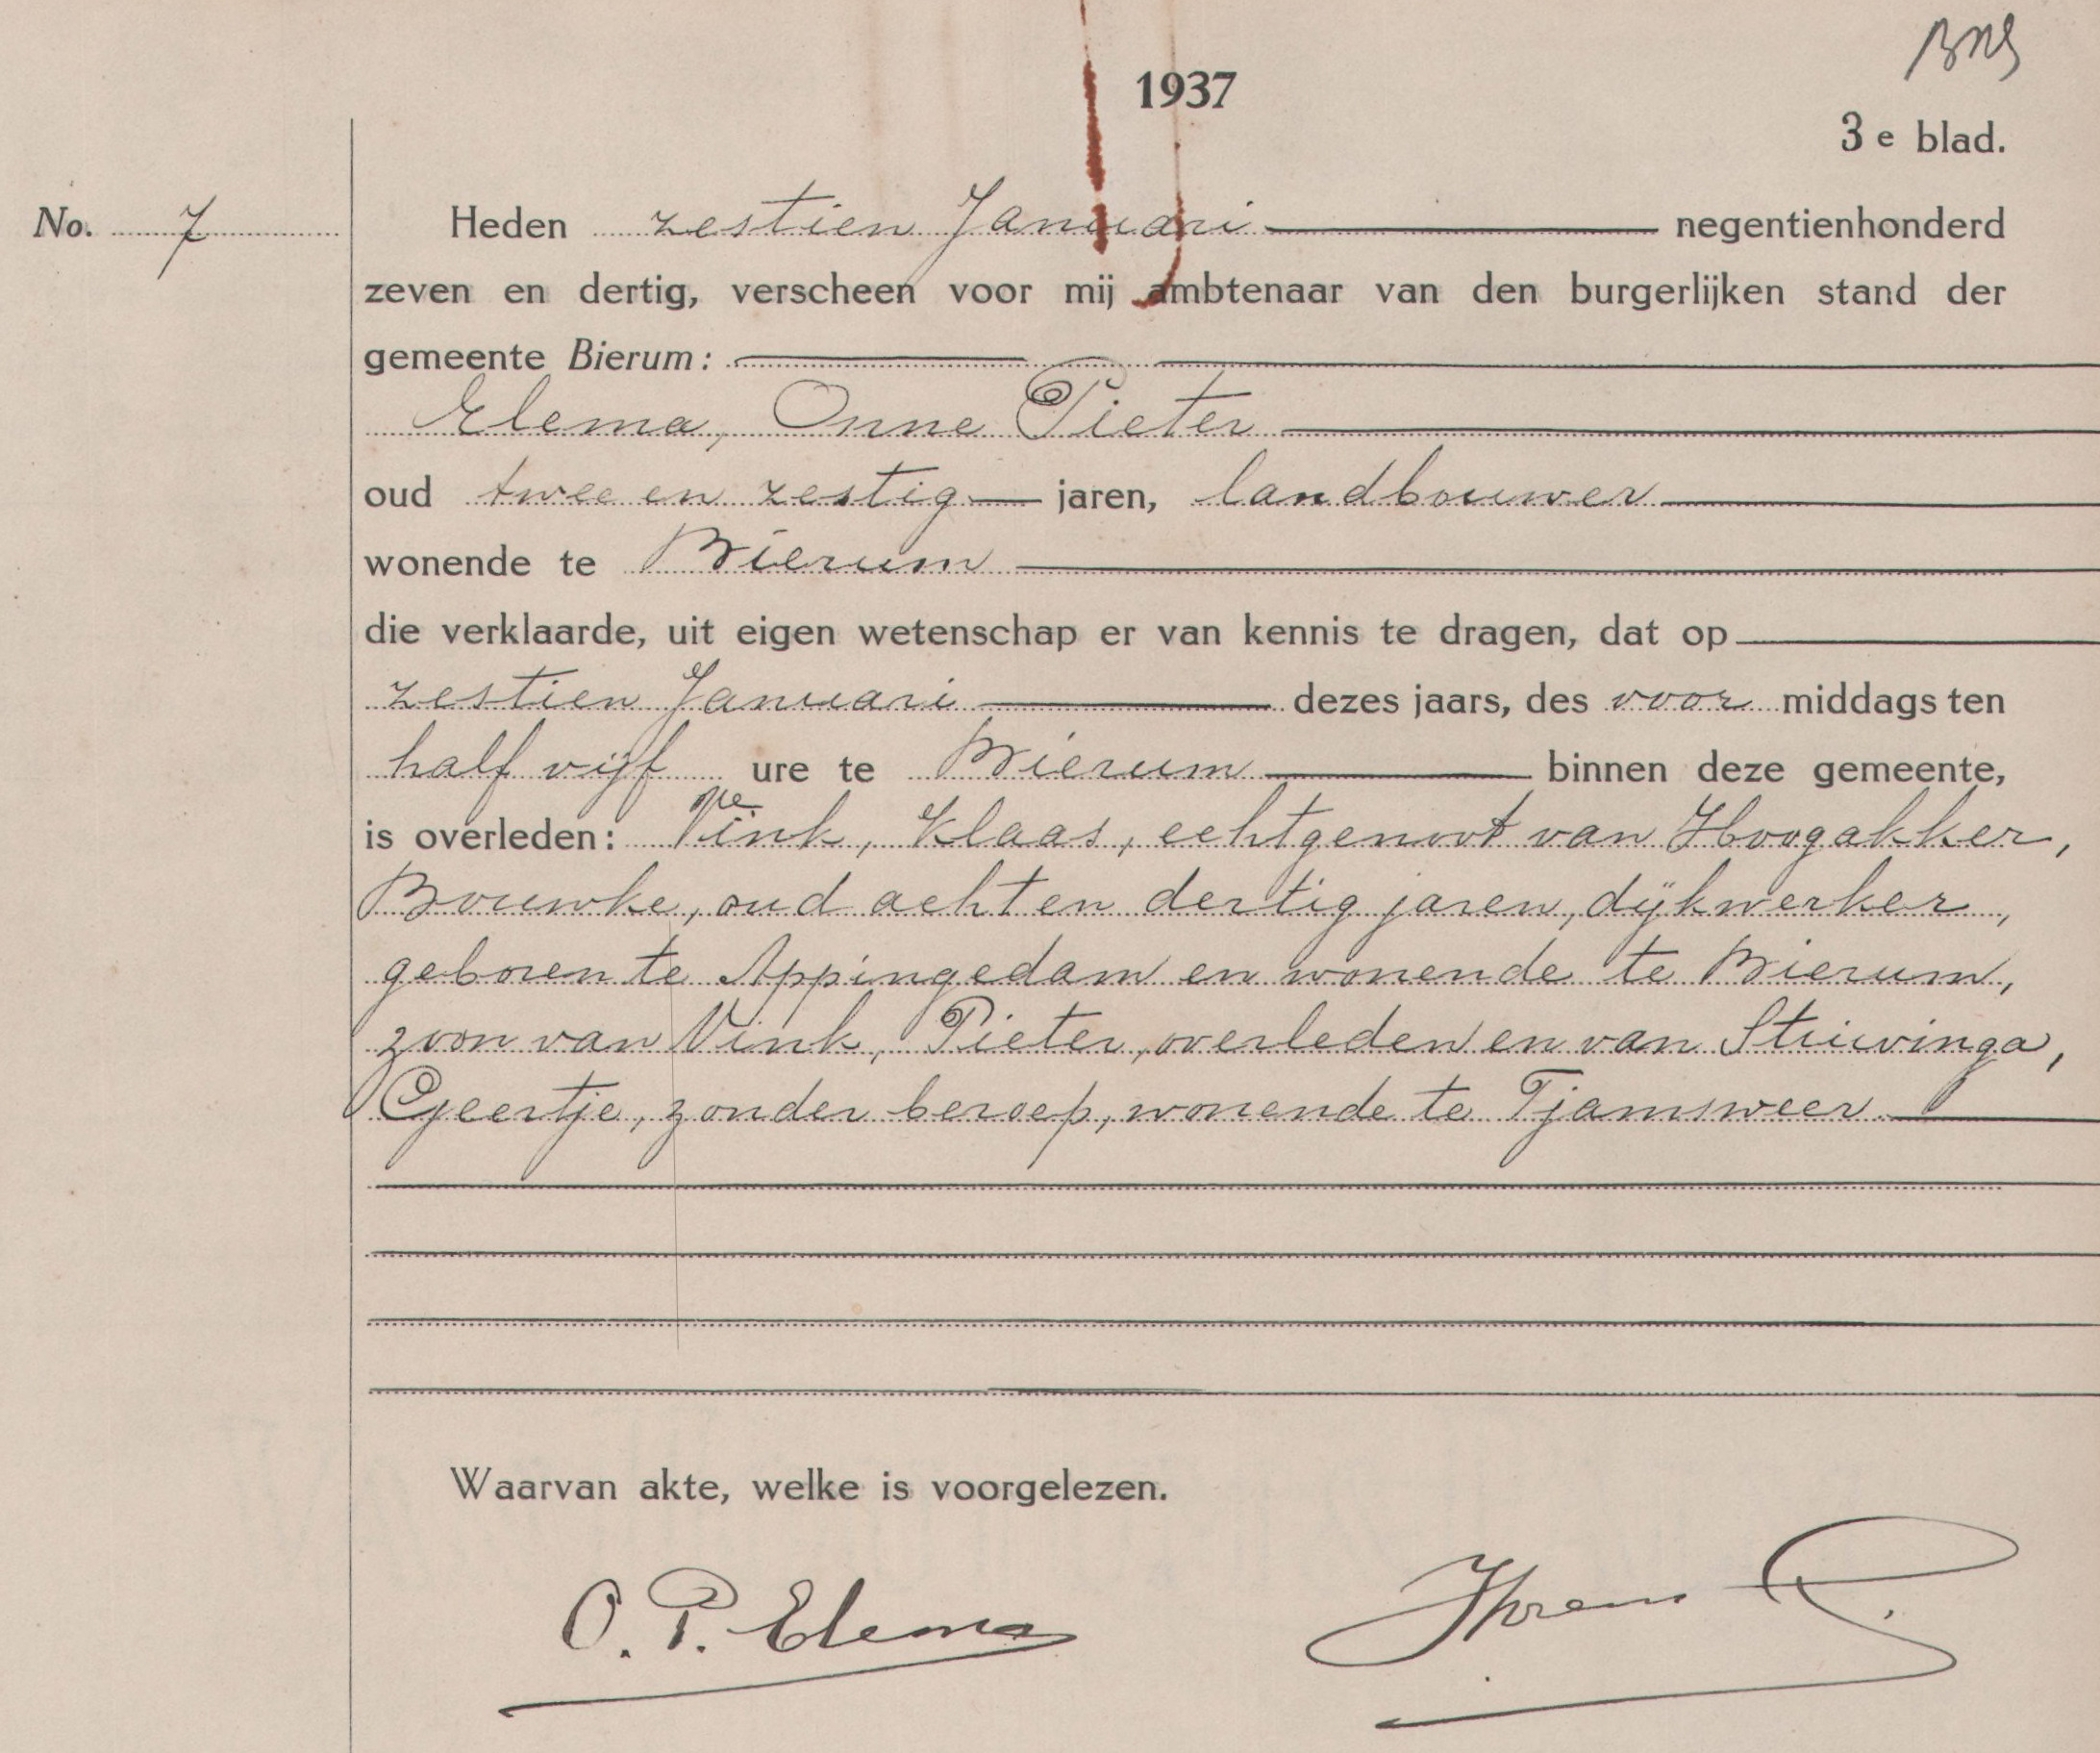 1937
3 e blad.
No. 7
Heden zestien Januari negentienhonderd
zeven en dertig, verscheen voor mij ambtenaar van den burgerlijken stand der
gemeente Bierum:
Elema, Onne Pieter
oud twee en zestig jaren, landbouwer
wonende te Bierum
die verklaarde, uit eigen wetenschap er van kennis te dragen, dat op
zestien Januari dezes jaars, des voor middags ten
half vijf ure te Bierum binnen deze gemeente,
is overleden: Vink, Klaas, echtgenoot van Hoogakker,
Bouwke, oud acht en dertig jaren, dijkwerker,
geboren te Appingedam en wonende te Bierum,
zoon van Vink, Pieter, overleden en van Stuivinga,
Geertje, zonder beroep, wonende te Tjamsweer.
Waarvan akte, welke is voorgelezen.
O. P. Elema